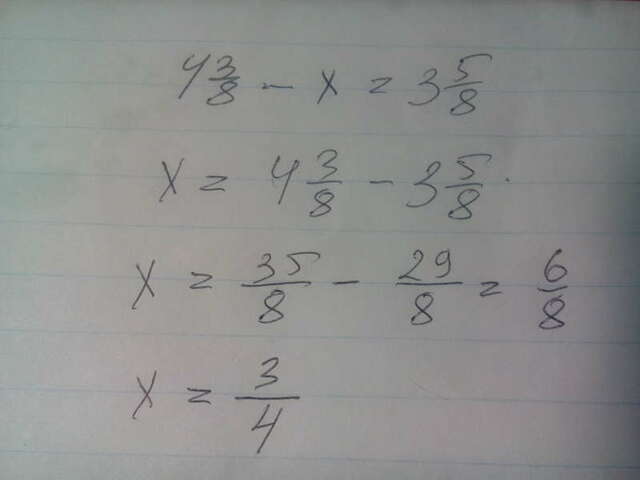 4 3/8 - x = 3 5/8
x = 4 3/8 - 3 5/8.
x = 35/8 - 29/8 = 6/8
x = 3/4